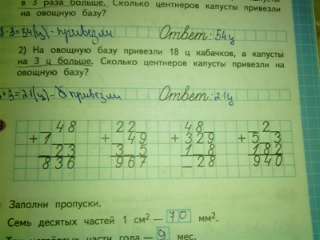 в 3 раза больше. Сколько центнеров капусты привезли
на овощную базу?
·3=54(ц)-привезли Ответ: 54ц
2) На овощную базу привезли 18 ц кабачков, а капусты
на 3 ц больше. Сколько центнеров капусты привезли на
овощную базу?
+3=21(ц)- привезли Ответ: 21ц
48 22 48 2
+1 + 49 +329 +5 3
23 3 5 182
836 967 28 940
Заполни пропуски.
Семь десятых частей 1 см² — 70 мм².
части года — 9 мес.